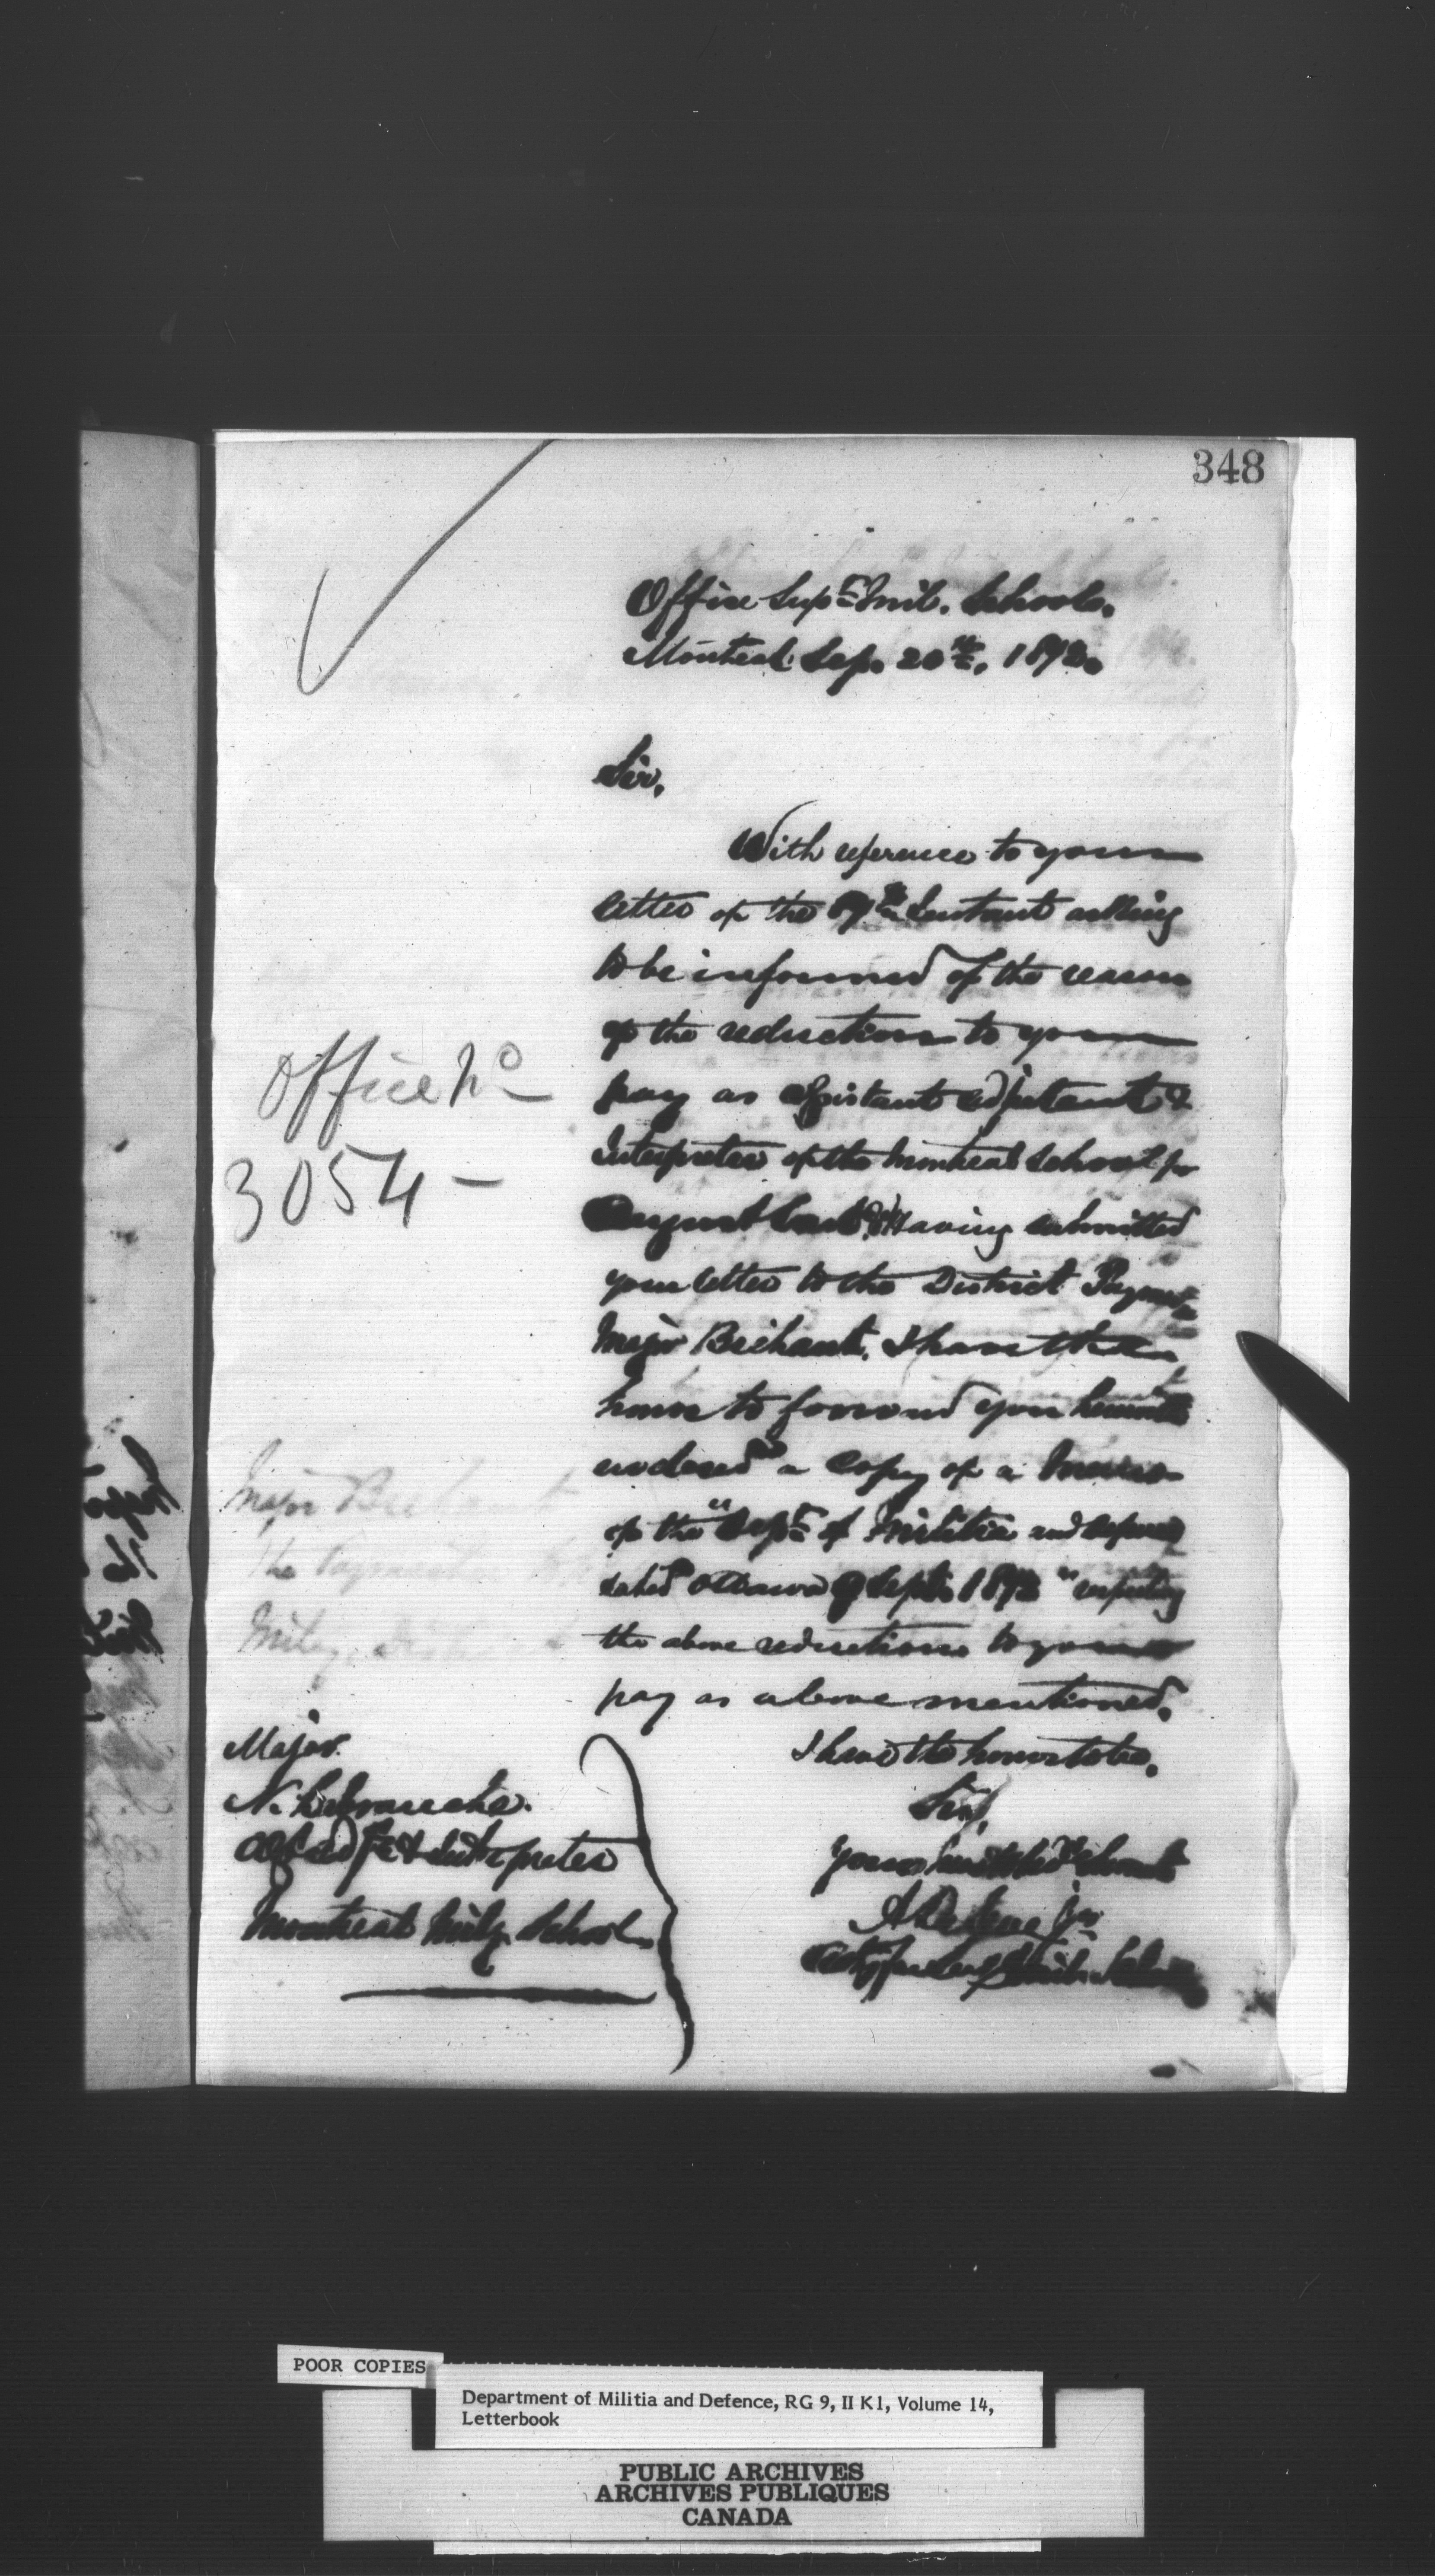 348
Office Supt Mil. Schools.
Montreal Sep. 20th, 1872.
Sir,
With reference to your
letter of the 17th Instant asking
to be informed of the reason
of the reduction to your
pay as Assistant Adjutant &
Interpreter of the Montreal School for
August last. Having submitted
your letter to the District Paymaster
Major Bechault, I have the
honor to forward you herewith
enclosed a copy of a
of the "Dept of Militia and Defence
dated Ottawa Sept. 1872 "
the above reduction to your
pay as above mentioned.
I have the honor to be,
Sir,
Your Servant
Office No
3054 -
Major Bechault
The Paymaster
Mily. District
Major
N.
Asst Adjt & Interpreter
Montreal Mily. School
POOR COPIES
Department of Militia and Defence, RG 9, II K1, Volume 14,
Letterbook
PUBLIC ARCHIVES
ARCHIVES PUBLIQUES
CANADA